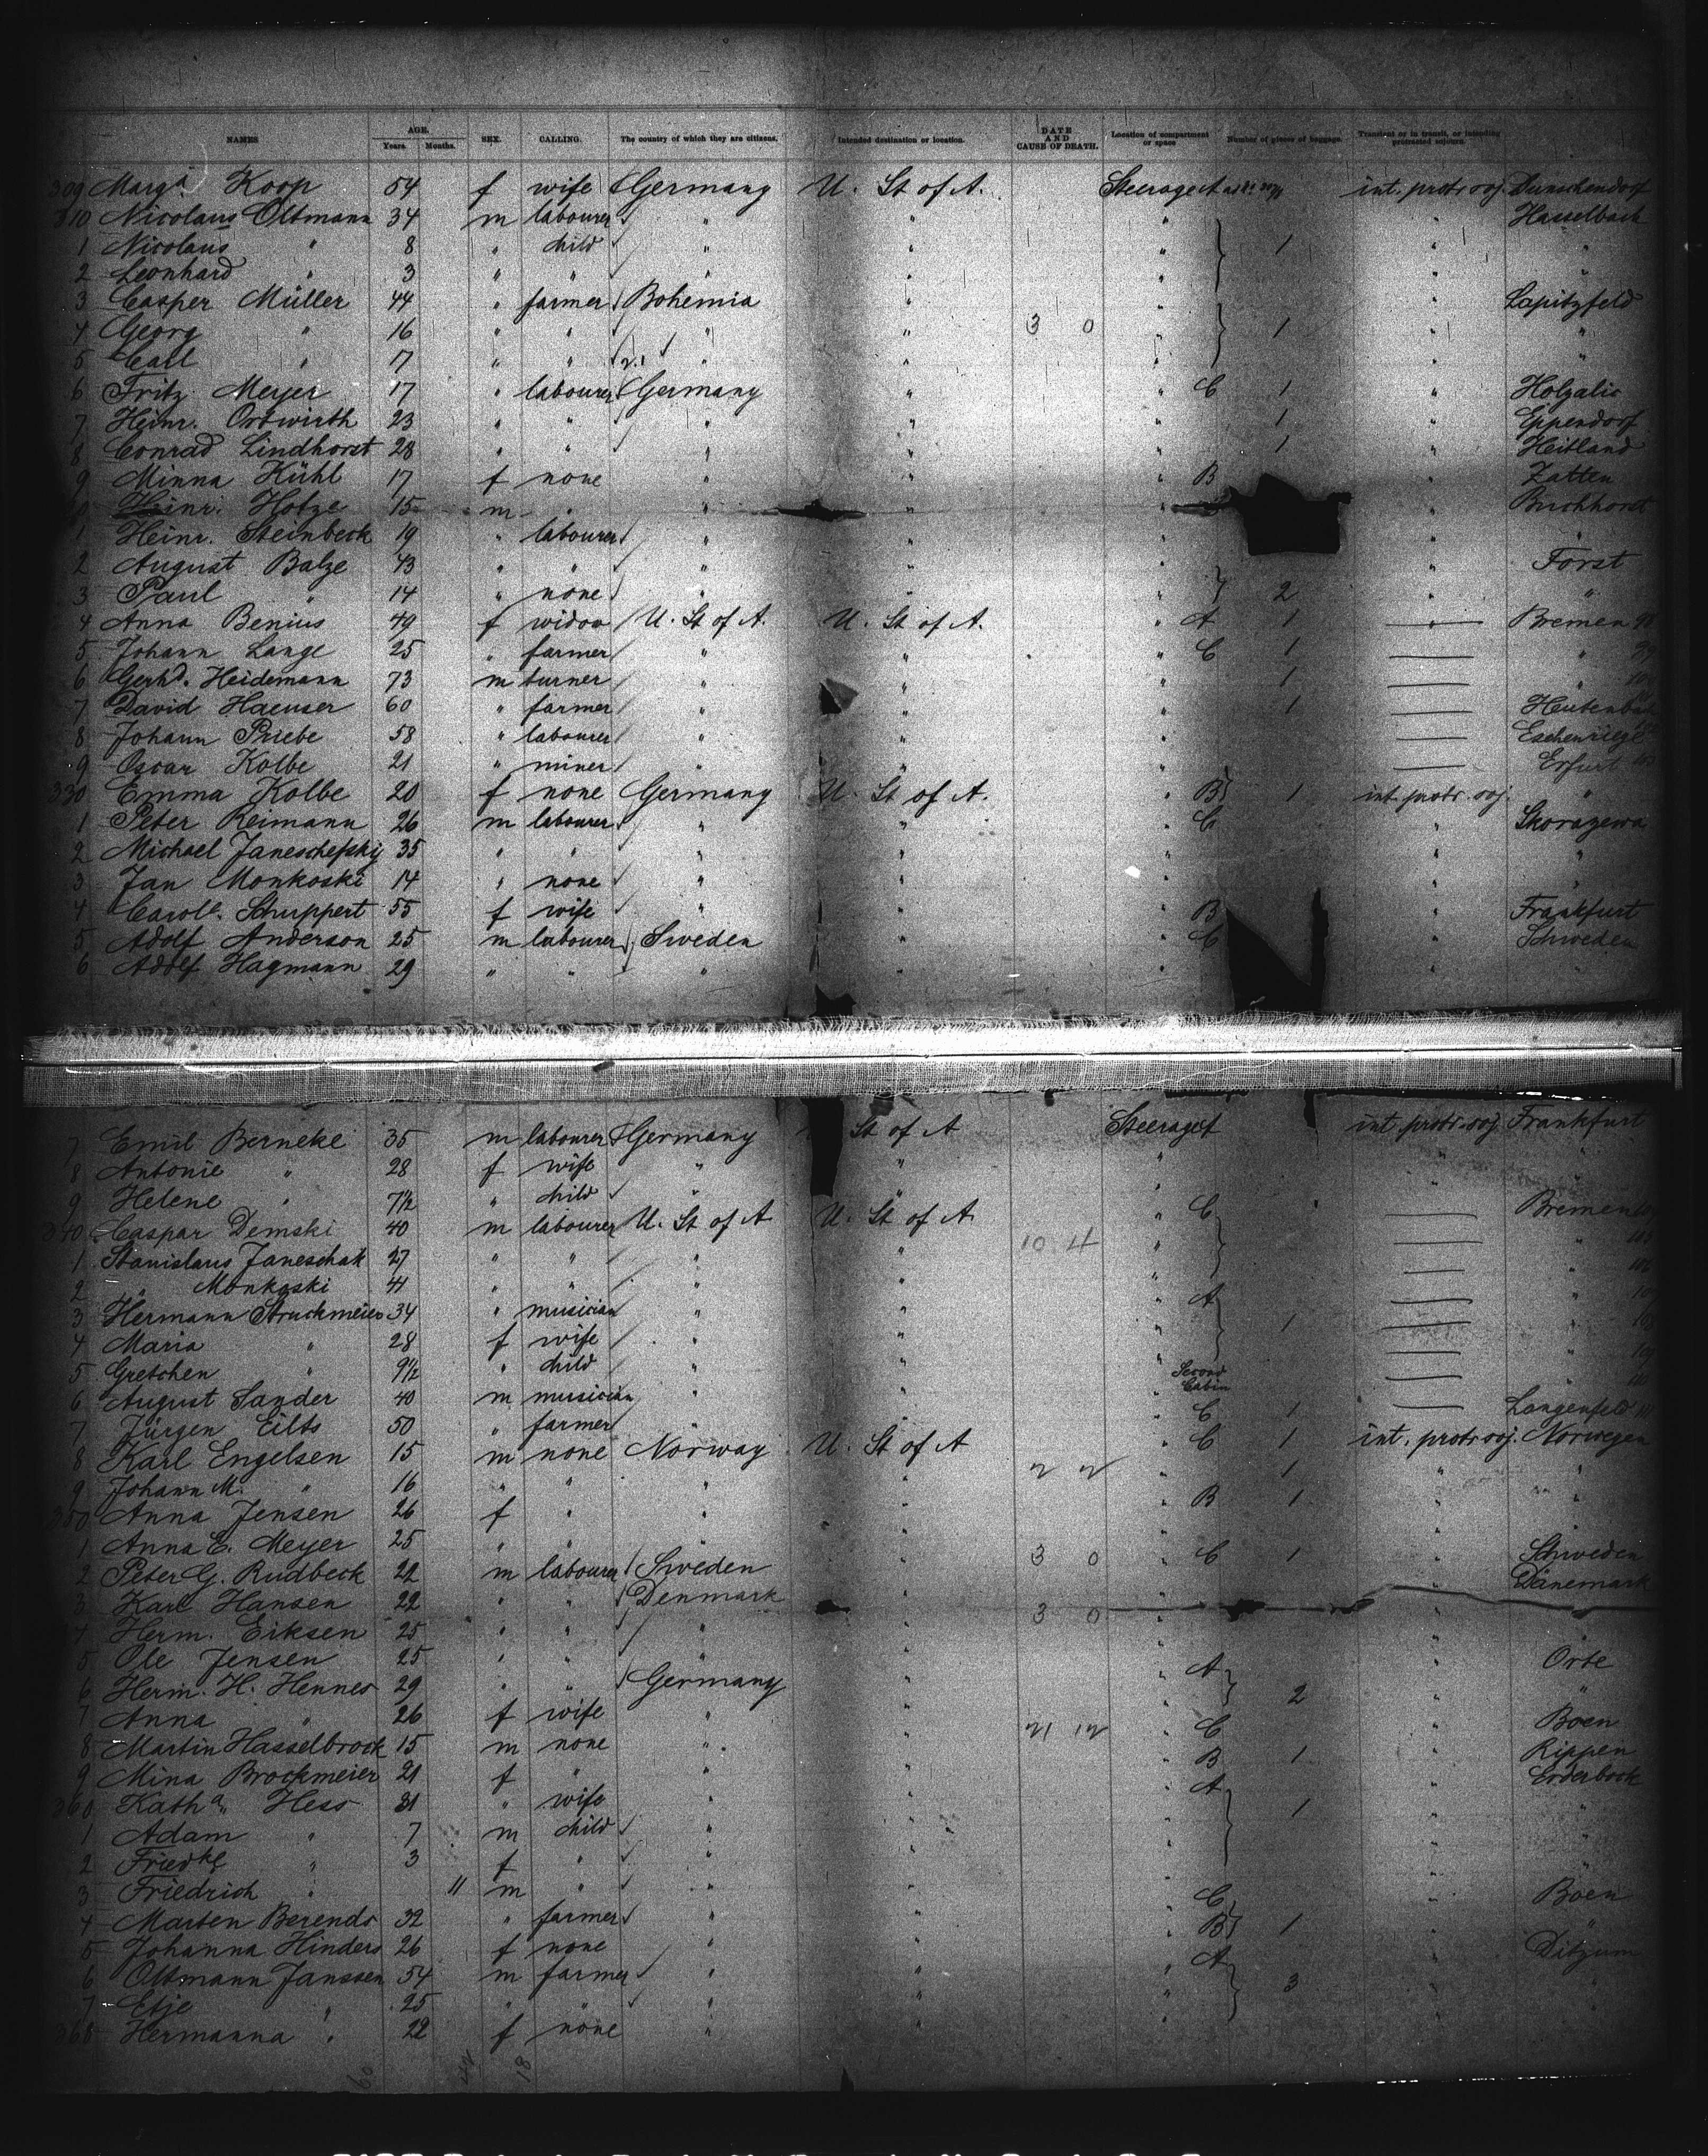 NAMES AGE. Years. Months. SEX. CALLING. The country of which they are citizens. Intended destination or location. DATE AND CAUSE OF DEATH. Location of compartment or space Number of pieces of baggage. Transient or in transit, or intending protracted sojourn.
309 Marga Koop 54 f wife Germany U. St of A. Steerage A int. protr. soj.
310 Nicolaus Oltmann 34 m labourer " " " " Hasselbach
1 Nicolaus " 8 " child " " " 1 " "
2 Leonhard " 3 " " " " " " "
3 Casper Müller 44 " farmer Bohemia " " " Lapitzfeld
4 Georg " 16 " " " " 3 0 " 1 " "
5 Carl " 17 " " " " " " "
6 Fritz Meyer 17 " labourer Germany " " C 1 " Holzalis
7 Heinr. Ortwirth 23 " " " " " 1 " Eipendorf
8 Conrad Lindhorst 28 " " " " " 1 " Heitland
9 Minna Kühl 17 f none " " " B " Zatten
0 Heinr. Hotze 15 m " " " " Buchhorst
1 Heinr. Steinbeck 19 " labourer " " " "
2 August Balze 43 " " " " " " Forst
3 Paul " 14 " none " " " 2 " "
4 Anna Benius 49 f widow U. St of A. U. St of A. " A 1 Bremen 98
5 Johann Lange 25 " farmer " " " C 1 " 99
6 Gerhd. Heidemann 73 m turner " " " 1 "
7 David Haeuser 60 " farmer " " " 1
8 Johann Priebe 58 " labourer " " "
9 Oscar Kolbe 21 " miner " " " Erfurt
330 Emma Kolbe 20 f none Germany U. St of A. " B 1 int. protr. soj. "
1 Peter Reimann 26 m labourer " " " C " Skorazewa
2 Michael Janeschefski 35 " " " " " " "
3 Jan Monkoski 14 " none " " " "
4 Carole. Schuppert 55 f wife " " " B " Frankfurt
5 Adolf Anderson 25 m labourer Sweden " " C " Schweden
6 Adolf Hagmann 29 " " " " " " "
7 Emil Berneke 35 m labourer Germany St of A Steerage A int. protr. soj. Frankfurt
8 Antonie " 28 f wife " " " " "
9 Helene " 7½ " child " " " " "
340 Caspar Demski 40 m labourer U. St of A U. St of A " C Bremen
1 Stanislaus Janeschak 27 " " " " 10 4 " " 105
2 " Monkoski 41 " " " " " " 106
3 Hermann Struckmeier 34 " musician " " " A "
4 Maria " 28 f wife " " " 1 " 108
5 Gretchen " 9½ " child " " " " 109
6 August Sander 40 m musician " " Second Cabin "
7 Jürgen Eilts 50 " farmer " " " C 1 Langenfeld 111
8 Karl Engelsen 15 m none Norway U. St of A " C 1 int. protr. soj. Norwegen
9 Johann M. " 16 " " " " 2 2 " 1 " "
350 Anna Jensen 26 f " " " " B 1 " "
1 Anna E. Meyer 25 " " " " " "
2 Peter G. Rudbeck 22 m labourer Sweden " 3 0 " C 1 " Schweden
3 Karl Hansen 22 " " Denmark " " " Dänemark
4 Herm. Eiksen 25 " " " " 3 0 " "
5 Ole Jensen 25 " " " " " "
6 Herm. H. Hennes 29 " " Germany " " A " Orte
7 Anna " 26 f wife " " " 2 " "
8 Martin Hasselbrock 15 m none " " 21 12 " C " Boen
9 Mina Brockmeier 21 f " " " " B 1 " Rippen
360 Katha. Hess 31 " wife " " " A "
1 Adam " 7 m child " " " 1 " "
2 Friedke " 3 f " " " " " "
3 Friedrich " 11 m " " " " " "
4 Marten Berends 32 " farmer " " " C " Boen
5 Johanna Hinders 26 f none " " " B 1 " "
6 Oltmann Janssen 54 m farmer " " " A " Ditzum
7 Etje " 25 " " " " " 3 "
368 Hermanna " 22 f none " " " "
60 18